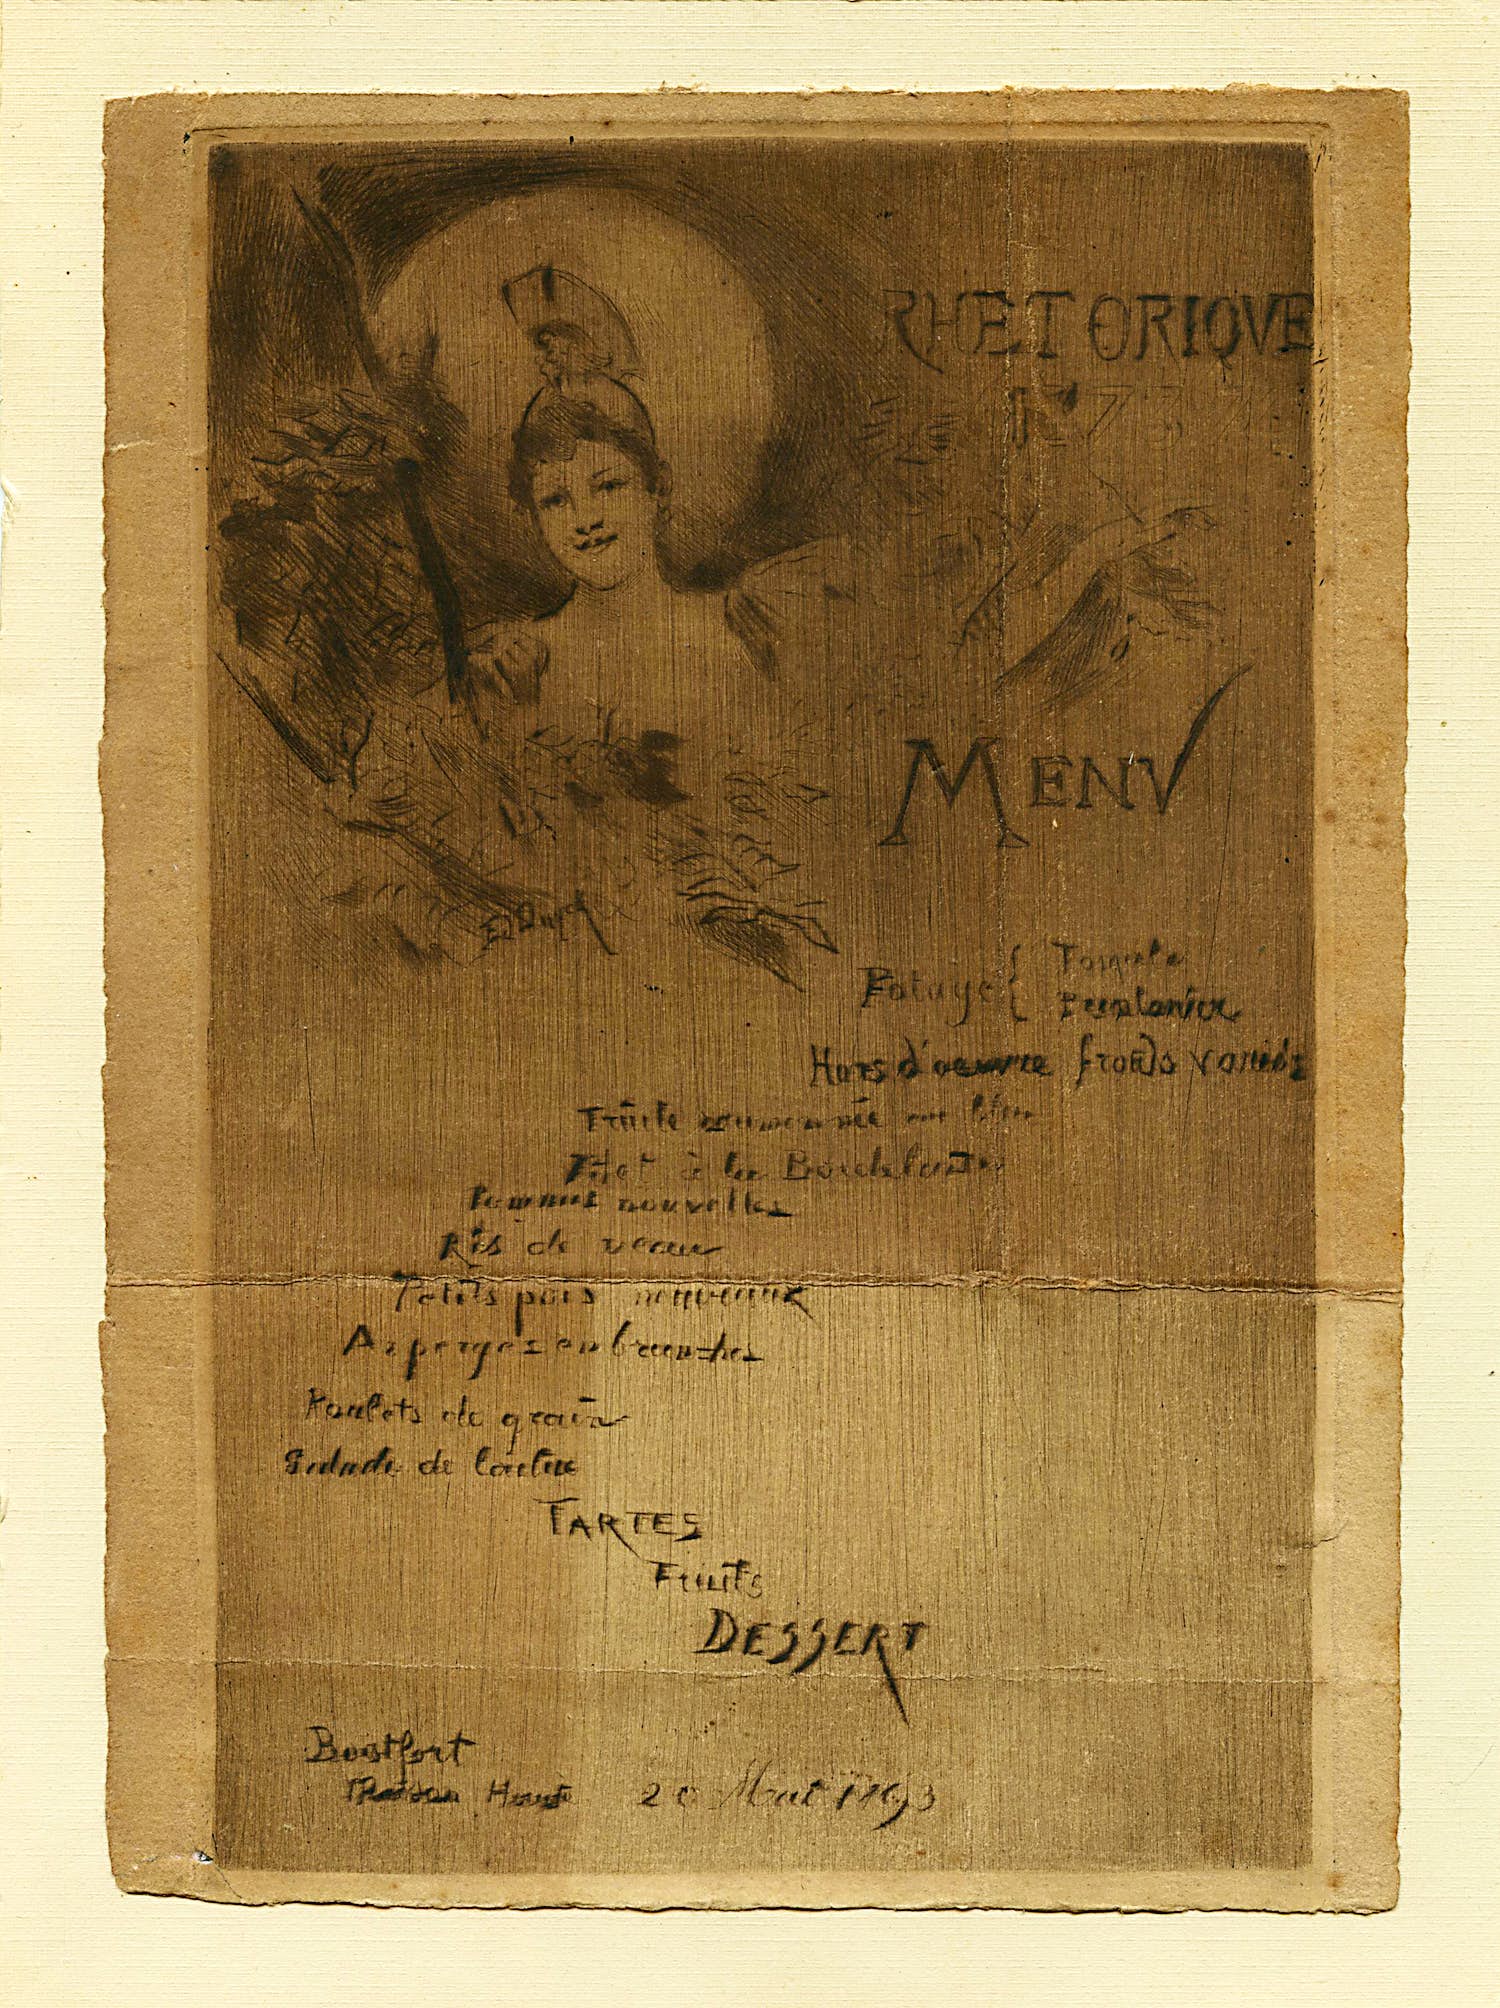 RHETORIQVE
MENV
Potage { Tomate
Printanier
Hors d'oeuvre froids variés
Truite saumonnée au bleu
Filet à la Bordelaise
Pommes nouvelles
Ris de veau
Petits pois nouveaux
Asperges en branches
Poulets de grain
Salade de laitue
TARTES
Fruits
DESSERT
Boitsfort
Maison Haute 20 Mai 1893